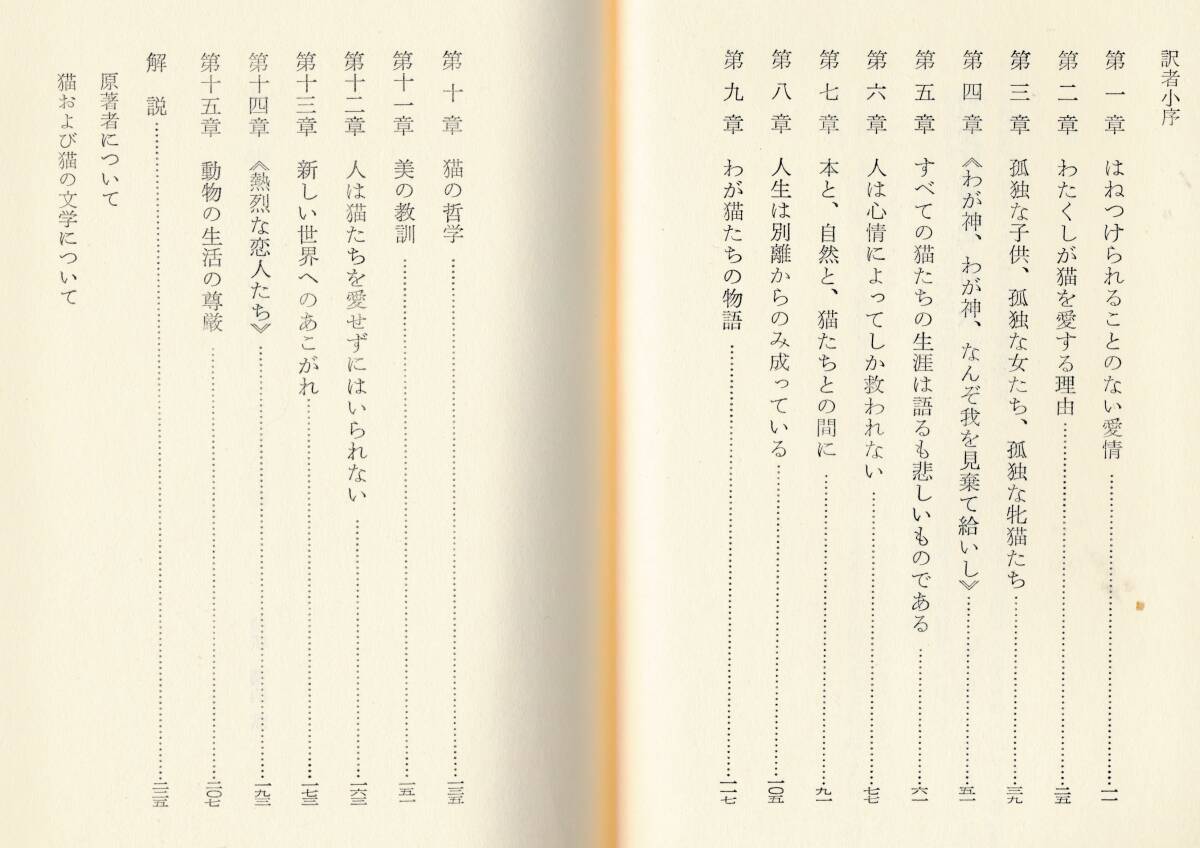 訳者小序
第一章 はねつけられることのない愛情……一一
第二章 わたくしが猫を愛する理由……二五
第三章 孤独な子供、孤独な女たち、孤独な牝猫たち……三九
第四章 《わが神、わが神、なんぞ我を見棄て給いし》……五一
第五章 すべての猫たちの生涯は語るも悲しいものである……六一
第六章 人は心情によってしか救われない……七七
第七章 本と、自然と、猫たちとの間に……九一
第八章 人生は別離からのみ成っている……一〇五
第九章 わが猫たちの物語……一一七
第十章 猫の哲学……一三五
第十一章 美の教訓……一五一
第十二章 人は猫たちを愛せずにはいられない……一六三
第十三章 新しい世界へのあこがれ……一七三
第十四章 《熱烈な恋人たち》……一九三
第十五章 動物の生活の尊厳……二〇七
解説……二三五
原著者について
猫および猫の文学について